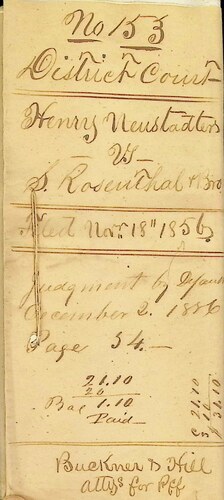 No 153
District Court
Henry Neustadter
Vs
S. Rosenthal & Bro
Filed Novr 18" 1856
Judgment by Default
December 2. 1856
Page 54.—
21.10
20
Bal 1.10
Paid
Buckner & Hill
attys for Plff